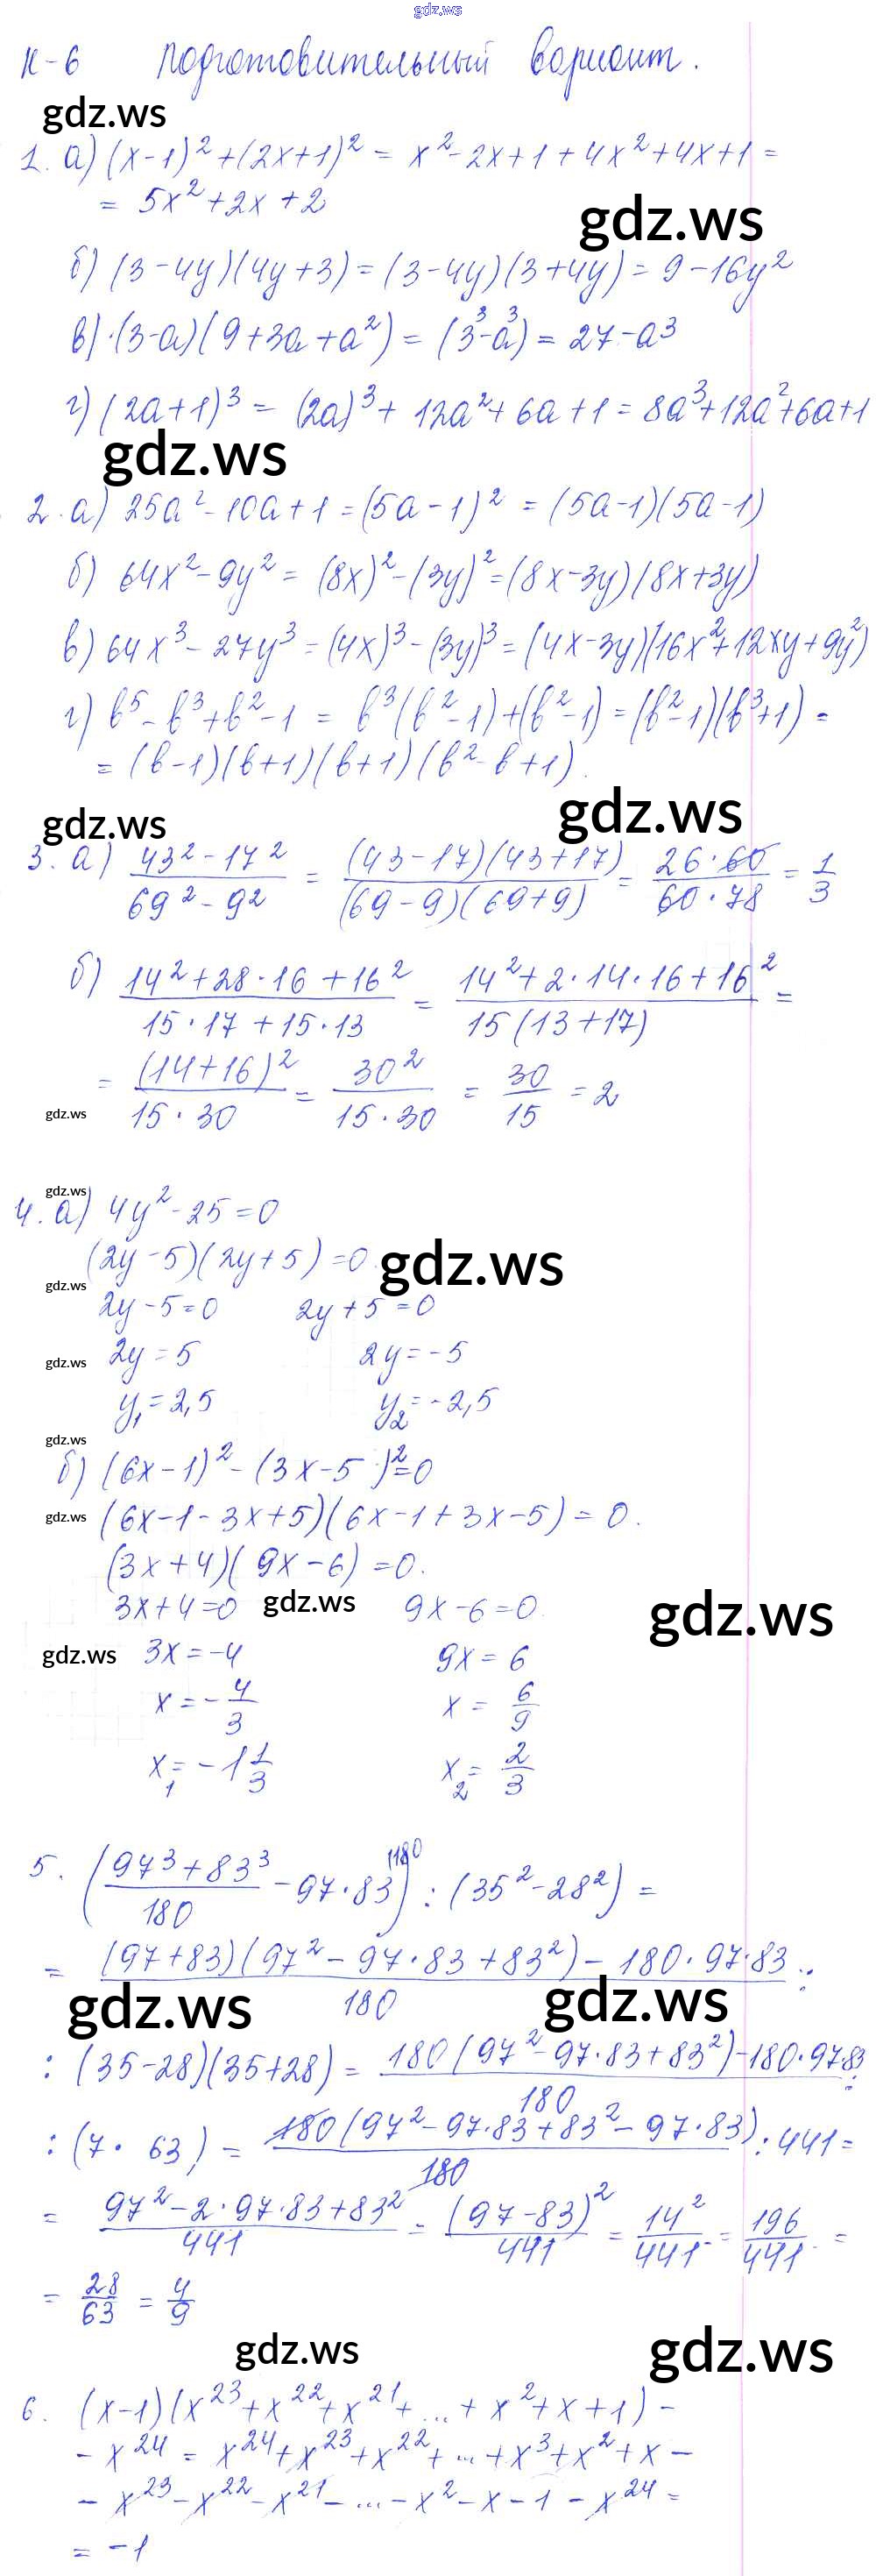 gdz.ws
К-6 Подготовительный вариант.
gdz.ws
1. а) (x-1)² + (2x+1)² = x² - 2x + 1 + 4x² + 4x + 1 =
= 5x² + 2x + 2
gdz.ws
б) (3-4y)(4y+3) = (3-4y)(3+4y) = 9 - 16y²
в) (3-a)(9+3a+a²) = (3³-a³) = 27 - a³
г) (2a+1)³ = (2a)³ + 12a² + 6a + 1 = 8a³ + 12a² + 6a + 1
gdz.ws
2. а) 25a² - 10a + 1 = (5a-1)² = (5a-1)(5a-1)
б) 64x² - 9y² = (8x)² - (3y)² = (8x-3y)(8x+3y)
в) 64x³ - 27y³ = (4x)³ - (3y)³ = (4x-3y)(16x²+12xy+9y²)
г) b⁵ - b³ + b² - 1 = b³(b²-1) + (b²-1) = (b²-1)(b³+1) =
= (b-1)(b+1)(b+1)(b²-b+1).
gdz.ws
gdz.ws
3. а) (43² - 17²)/(69² - 9²) = ((43-17)(43+17))/((69-9)(69+9)) = (26·60)/(60·78) = 1/3
б) (14² + 28·16 + 16²)/(15·17 + 15·13) = (14² + 2·14·16 + 16²)/(15(13+17)) =
= (14+16)²/(15·30) = 30²/(15·30) = 30/15 = 2
gdz.ws
gdz.ws
4. а) 4y² - 25 = 0
(2y-5)(2y+5) = 0.
gdz.ws
gdz.ws
2y - 5 = 0 2y + 5 = 0
gdz.ws 2y = 5 2y = -5
y₁ = 2,5 y₂ = -2,5
gdz.ws
б) (6x-1)² - (3x-5)² = 0
gdz.ws (6x-1-3x+5)(6x-1+3x-5) = 0.
(3x+4)(9x-6) = 0.
3x + 4 = 0 gdz.ws 9x - 6 = 0. gdz.ws
gdz.ws 3x = -4 9x = 6
x = -4/3 x = 6/9
x₁ = -1 1/3 x₂ = 2/3
5. ((97³ + 83³)/180 - 97·83^(180) ) : (35² - 28²) =
= ((97+83)(97² - 97·83 + 83²) - 180·97·83)/180 :
gdz.ws gdz.ws
: (35-28)(35+28) = (180(97² - 97·83 + 83²) - 180·97·83)/180 :
: (7·63) = (180(97² - 97·83 + 83² - 97·83))/180 : 441 =
= (97² - 2·97·83 + 83²)/441 = (97-83)²/441 = 14²/441 = 196/441 =
= 28/63 = 4/9
gdz.ws gdz.ws
6. (x-1)(x²³ + x²² + x²¹ + ... + x² + x + 1) -
- x²⁴ = x²⁴ + x²³ + x²² + ... + x³ + x² + x -
- x²³ - x²² - x²¹ - ... - x² - x - 1 - x²⁴ =
= -1